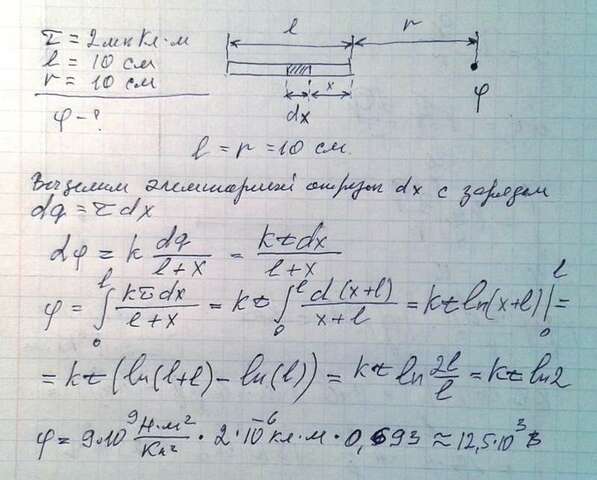 τ = 2 мк Кл·м
l = 10 см
r = 10 см
φ - ?
l
r
x
dx
φ
l = r = 10 см.
Выделим элементарный отрезок dx с зарядом
dq = τ dx
dφ = k dq/(l+x) = kτdx/(l+x)
φ = ∫₀ˡ kτdx/(l+x) = kτ ∫₀ˡ d(x+l)/(x+l) = kτ ln(x+l)|₀ˡ =
= kτ (ln(l+l) - ln(l)) = kτ ln 2l/l = kτ ln2
φ = 9·10⁹ Н·м²/Кл² · 2·10⁻⁶ кл·м · 0,693 ≈ 12,5·10³ В